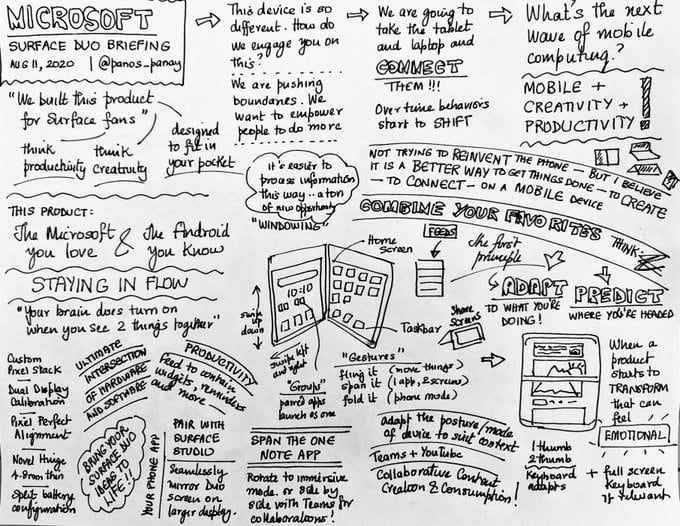 MICROSOFT
SURFACE DUO BRIEFING
AUG 11, 2020 | @panos_panay
This device is so
different. How do
we engage you on
this?
We are pushing
boundaries. We
want to empower
people to do more
We are going to
take the tablet
and laptop and
CONNECT
THEM!!!
Over time behaviors
start to SHIFT
What's the next
wave of mobile
computing?
MOBILE +
CREATIVITY +
PRODUCTIVITY!
"We built this product
for Surface fans"
think
productivity
think
creativity
designed
to fit in
your pocket
it's easier to
process information
this way.. a ton
of new opportunity
"WINDOWING"
NOT TRYING TO REINVENT THE PHONE - BUT I BELIEVE
IT IS A BETTER WAY TO GET THINGS DONE - TO CREATE
- TO CONNECT - ON A MOBILE DEVICE
COMBINE YOUR FAVORITES
THINK:
THIS PRODUCT:
The Microsoft
you love
&
The Android
you know
STAYING IN FLOW
"Your brain does turn on
when you see 2 things together"
Home
Screen
10:10
Taskbar
swipe
up
down
swipe left
and right
FEEDS
The first
principle
ADAPT
TO WHAT YOU'RE
DOING!
PREDICT
WHERE YOU'RE HEADED
Share
Screens
Custom
Pixel Stack
Dual Display
Calibration
Pixel Perfect
Alignment
Novel Hinge
4.8mm thin
Split battery
configuration
ULTIMATE
INTERSECTION
OF HARDWARE
AND SOFTWARE
BRING YOUR
SURFACE DUO
IDEAS TO
LIFE!!
PRODUCTIVITY
Feed to contain
widgets, reminders
and more
YOUR PHONE APP
PAIR WITH
SURFACE
STUDIO
Seamlessly
mirror Duo
screen on
larger display.
"Groups"
paired apps
launch as one
SPAN THE ONE
NOTE APP
Rotate to immersive
mode. or side by
side with Teams for
collaborations!
"Gestures"
fling it (move things)
span it (1 app, 2 screens)
fold it (phone mode)
adapt the posture/mode
of device to suit context
Teams + YouTube
Collaborative Content
Creation & Consumption!
When a
product
starts to
TRANSFORM
that can
feel
EMOTIONAL
1 thumb
2 thumb
Keyboard
adapts
+ full screen
Keyboard
if relevant